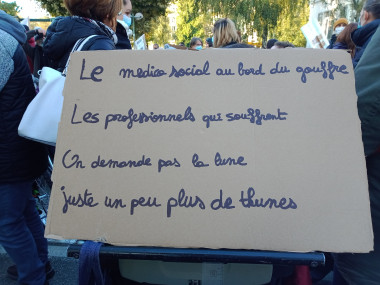 Le medico social au bord du gouffre
Les professionnels qui souffrent
On demande pas la lune
juste un peu plus de thunes